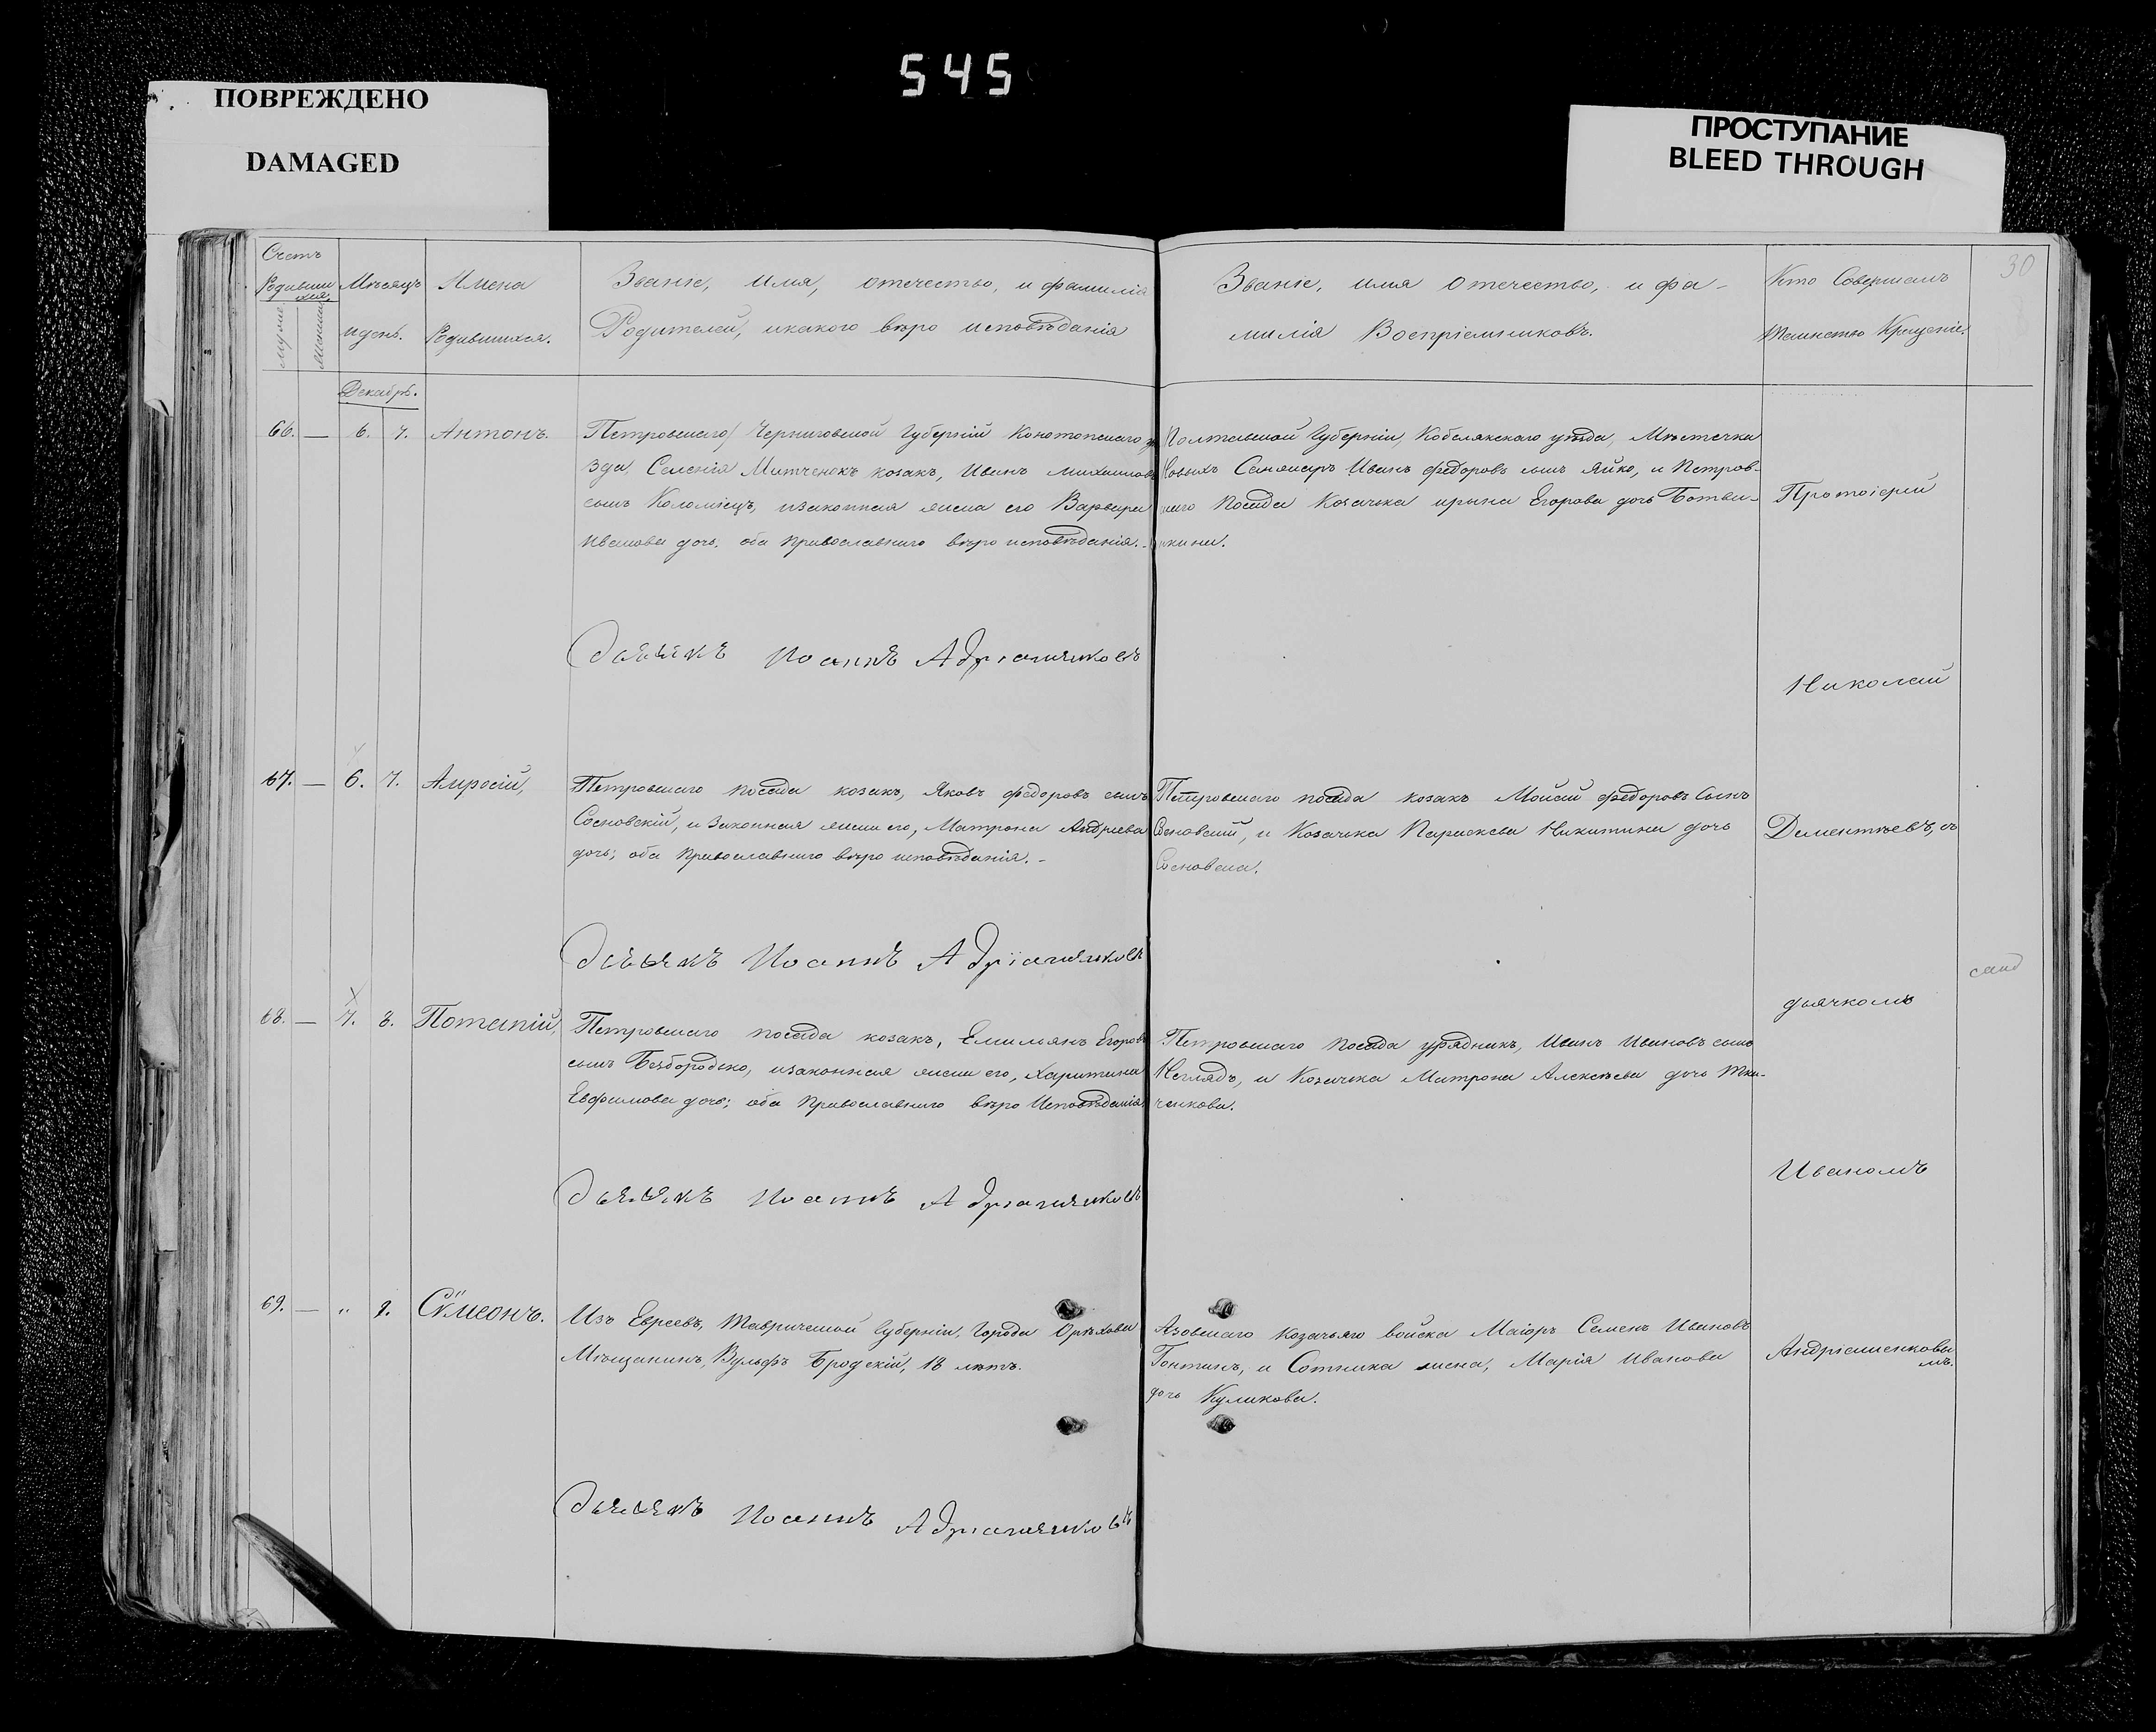 545
ПОВРЕЖДЕНО
DAMAGED
ПРОСТУПАНИЕ
BLEED THROUGH
30
Счетъ
Родивши
хся,
мужск
женск
Мѣсяцъ
и день.
Имена
Родившихся.
Званіе, имя, отчество, и фамилія
Родителей, и какого вѣроисповѣданія
Званіе, имя отчество, и фа-
милія Воспріемниковъ.
Кто Совершалъ
таинство Крещенія.
Декабрь.
66. — 6. 7. Антонъ.
Петровскаго) Черниговской Губерніи Конотопскаго уѣ
зда Селенія Митченокъ козакъ, Иванъ Михаиловъ
сынъ Коломіецъ, и законная жена его Варвара
Иванова дочь, оба православнаго вѣроисповѣданія.-
Полтавской Губерніи, Кобелякскаго уѣзда, Мѣстечка
Новыхъ Санжаръ Иванъ Федоровъ сынъ Яйко, и Петров-
скаго Посада Козачка Ирына Егорова дочь Ботви-
нкина.
Протоіерей
Дьячекъ Иоаннъ Адріаненковъ
Николай
67. — 6. 7. Амросій,
Петровскаго посада козакъ, Яковъ Федоровъ сынъ
Сосновскій, и Законная жена его, Матрона Андреева
дочь; оба православнаго вѣроисповѣданія.-
Петровскаго посада козакъ Мойсей Федоровъ Сынъ
Сосновскій, и Козачка Параскева Никитина дочь
Сосновска.
Дементьевъ, съ
Дьячекъ Иоаннъ Адріаненковъ
дьячкомъ
68. — 7. 8. Потапій,
Петровскаго посада козакъ, Емильянъ Егоровъ
сынъ Безбородько, и законная жена его, Харитина
Евфимова дочь; оба православнаго вѣроисповѣданія.
Петровскаго посада урядникъ, Иванъ Ивановъ сынъ
Неглядъ, и Козачка Матрона Алексѣева дочь Тка-
ченкова.
Дьячекъ Иоаннъ Адріаненковъ
Иваномъ
69. — „ 9. Сѵмеонъ.
Изъ Евреевъ, Таврической Губерніи, Города Орѣхова
Мѣщанинъ, Вульфъ Бродскій, 18 лѣтъ.
Азовскаго Козачьяго войска Маіоръ Семенъ Ивановъ
Гонтинъ, и Сотника жена, Марія Иванова
дочь Куликова.
Андріаненковы
мъ.
Дьячекъ Иоаннъ Адріаненковъ